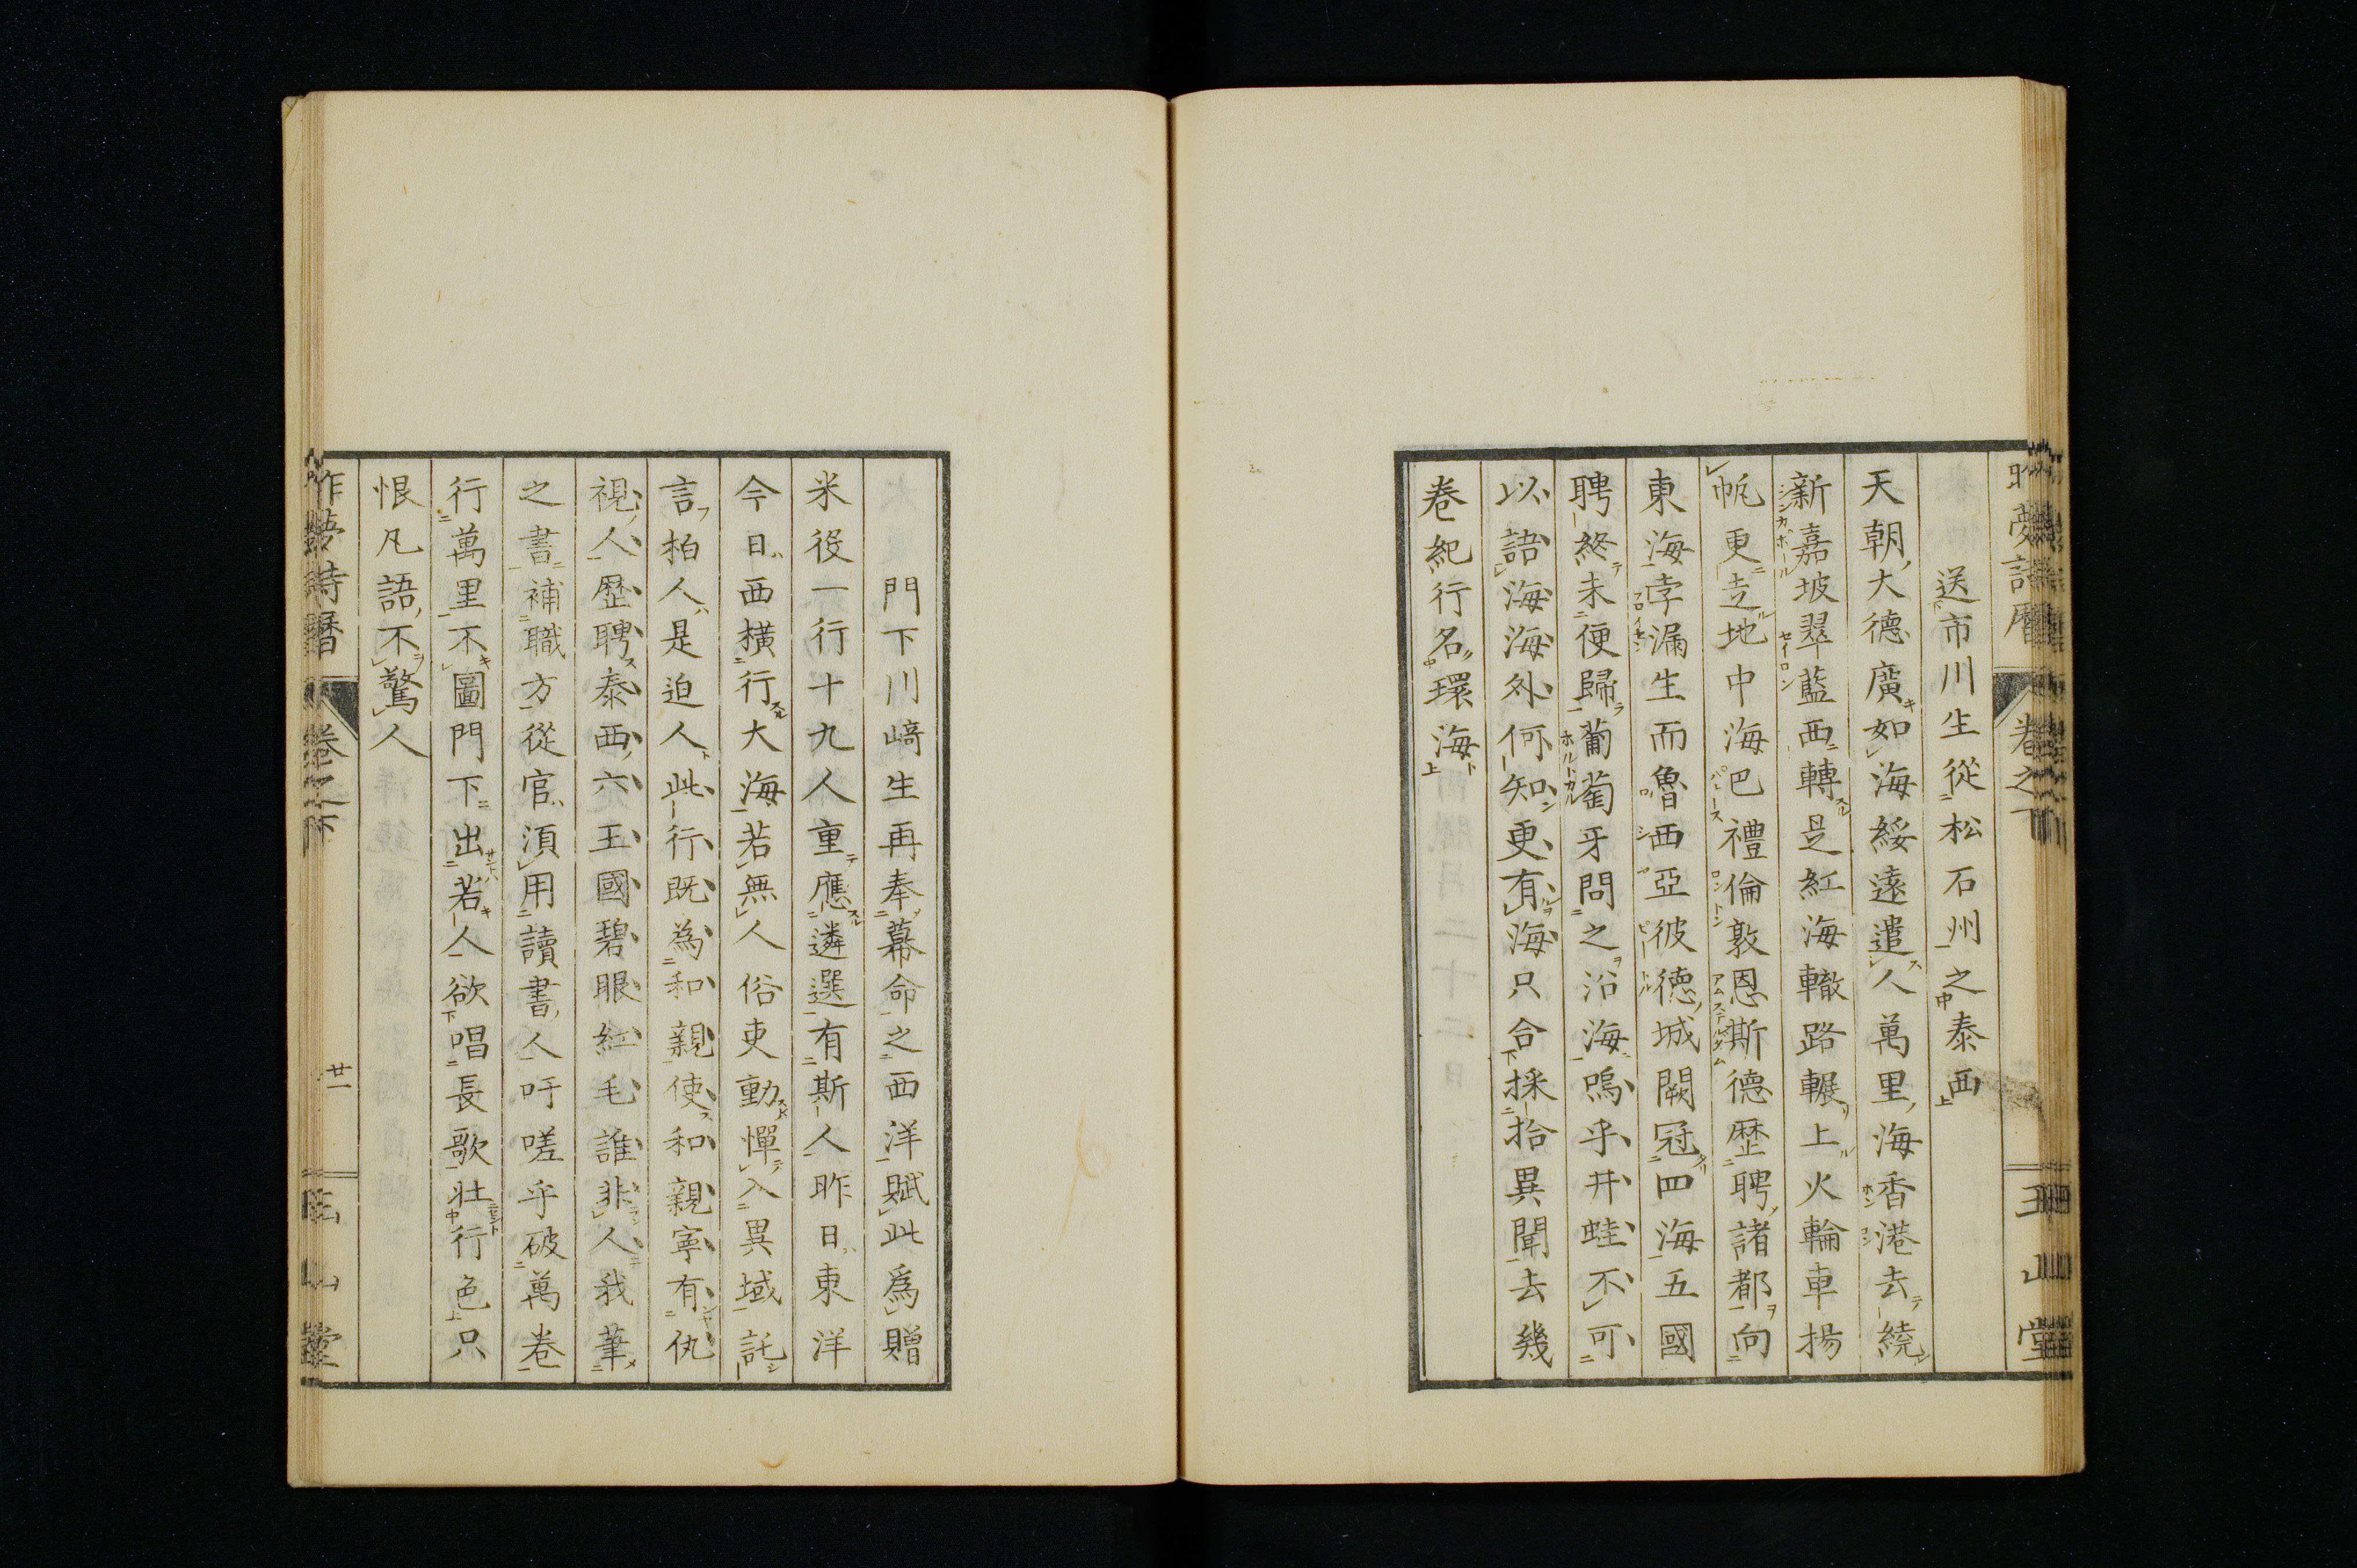 昨夢詩曆 卷之下 玉山堂
送市川生從松石州之泰西
天朝大德廣如海綏遠遣人萬里海香港去繞
新嘉坡翠藍西轉是紅海轍路輾上火輪車揚
帆更走地中海巴禮倫敦恩斯德歷聘諸都向
東海孛漏生而魯西亞彼德城闕冠四海五國
聘終未便歸葡萄牙問之沿海嗚乎井蛙不可
以語海海外何知更有海只合採拾異聞去幾
卷紀行名環海
門下川﨑生再奉幕命之西洋賦此爲贈
米役一行十九人重應遴選有斯人昨日東洋
今日西橫行大海若無人俗吏動憚入異域託
言柏人是迫人此行既為和親使和親寧有仇
視人歷聘泰西六王國碧眼紅毛誰非人我筆
之書補職方從官須用讀書人吁嗟乎破萬卷
行萬里不圖門下出若人欲唱長歌壯行色只
恨凡語不驚人
昨夢詩曆 卷之下 廿一 玉山堂